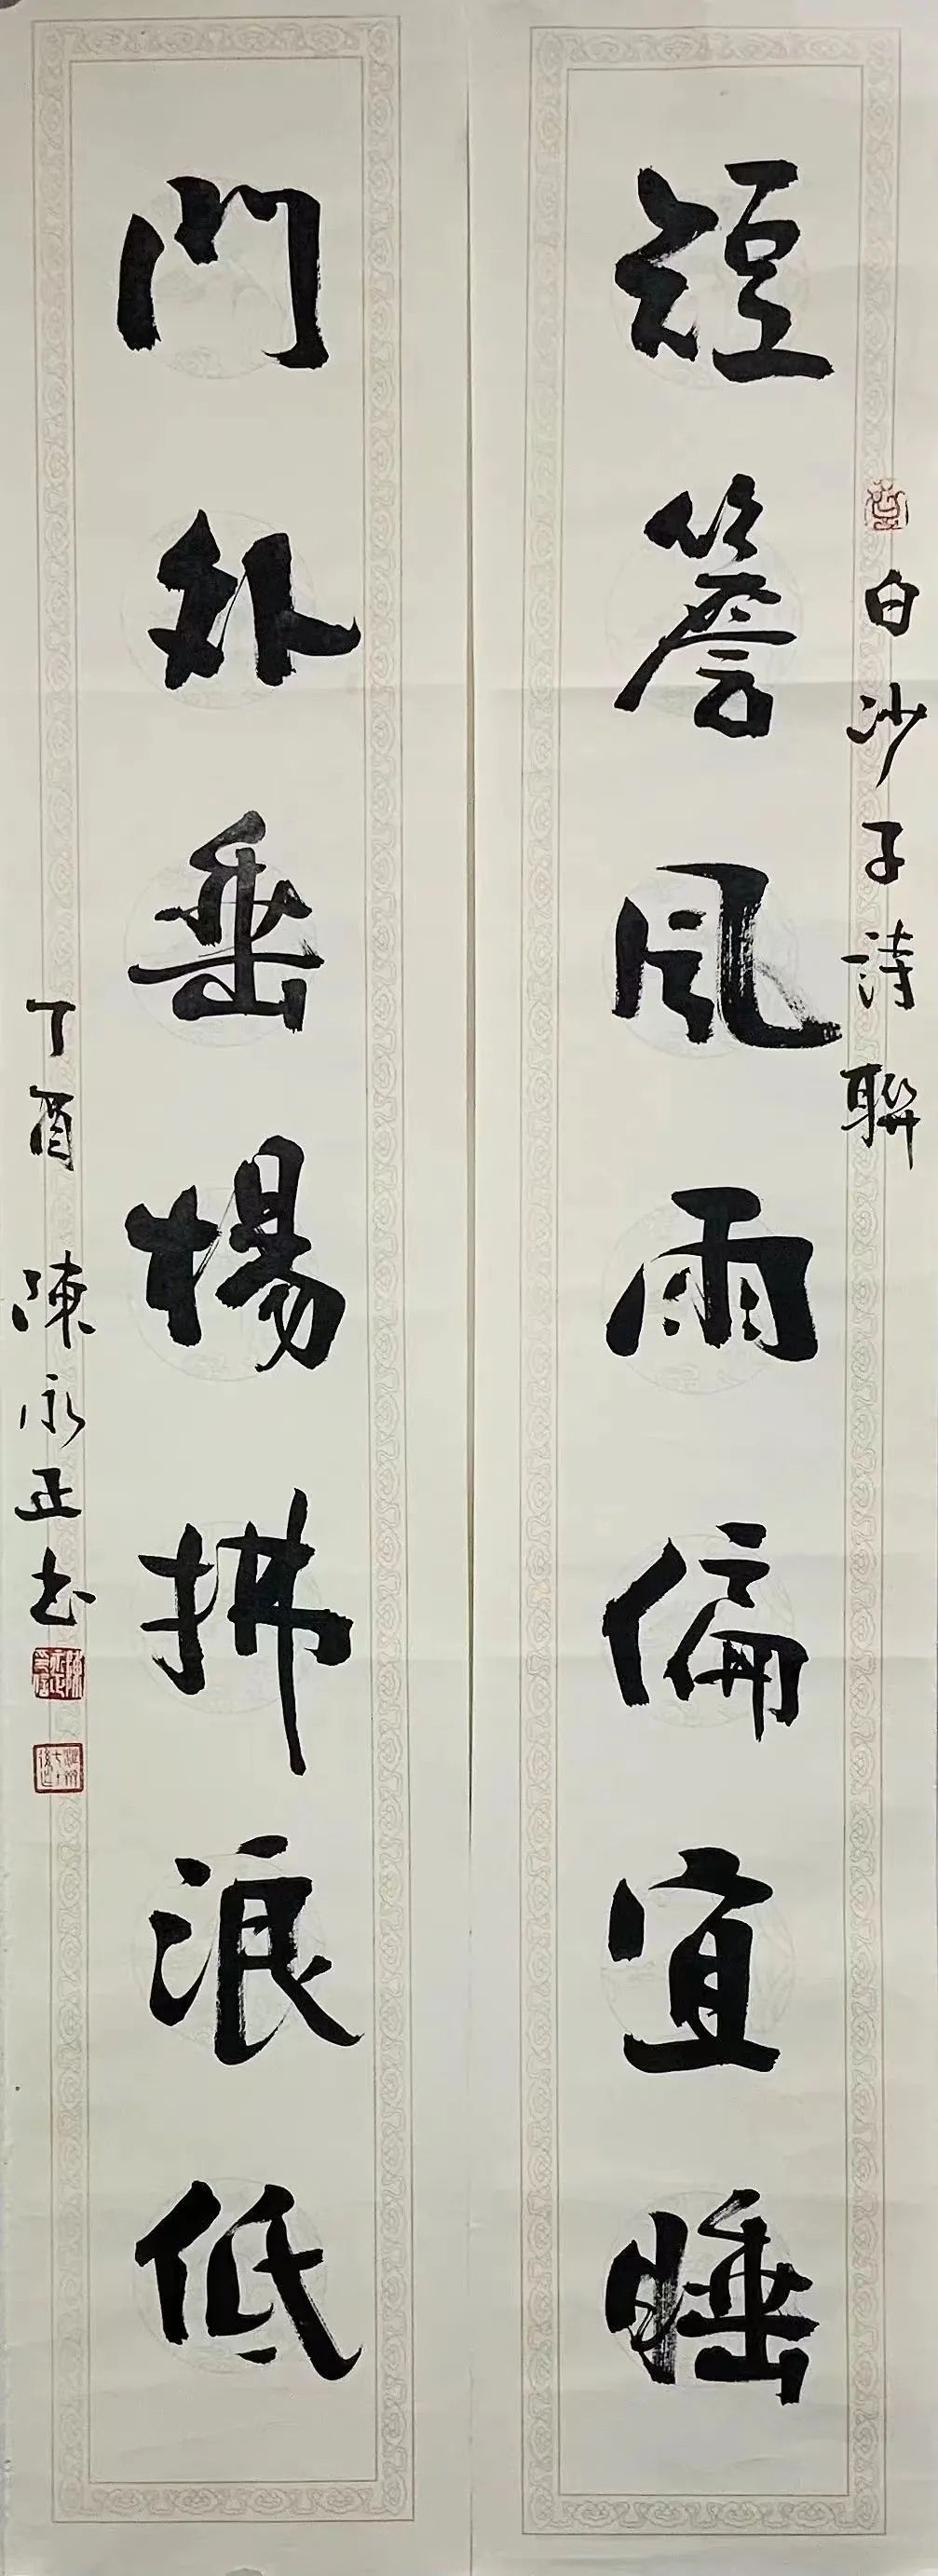 白沙子詩聯
短簷風雨偏宜睡
門外垂楊拂浪低
丁酉 陳永正书